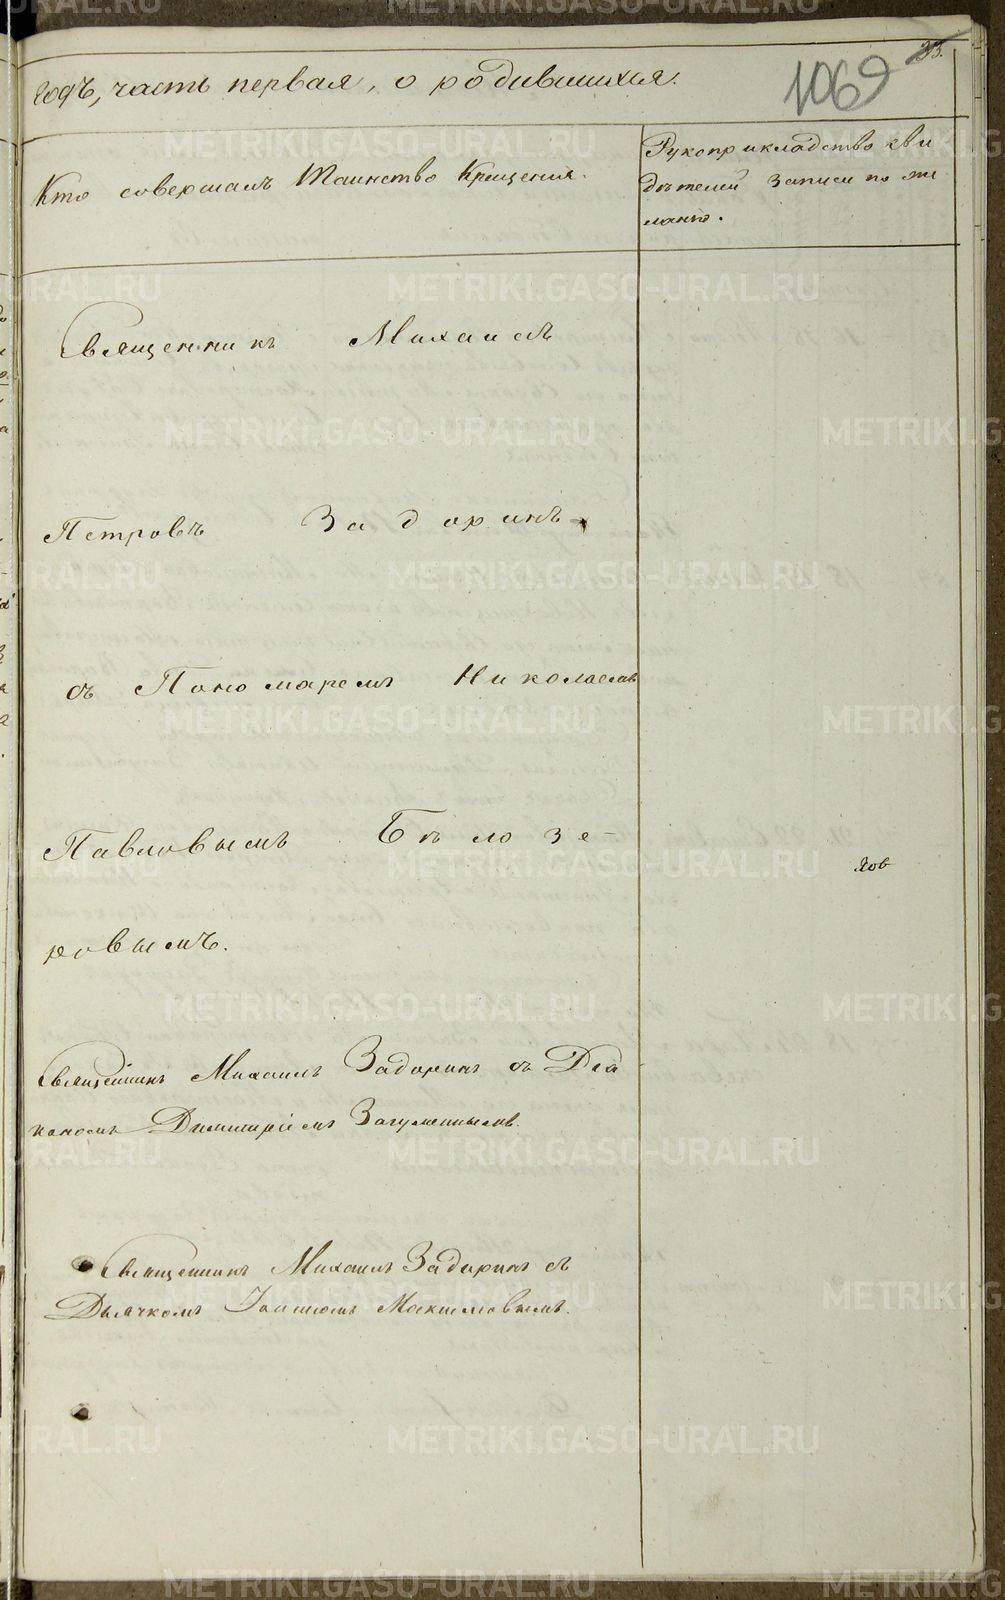 33.
1069
годъ, часть первая, о родившихся.
Кто совершалъ Таинство Крещенія.
Рукоприкладство сви
дѣтелей записи по же
ланію.
Священникъ Михаилъ
Петровъ Задоринъ
съ Пономаремъ Николаемъ
Павловымъ Бѣлозе-
ровымъ.
Священникъ Михаилъ Задоринъ съ Діа
кономъ Димитріемъ Загуменнымъ.
Священникъ Михаилъ Задоринъ съ
Дьячкомъ Іоанномъ Максимовымъ.
METRIKI.GASO-URAL.RU